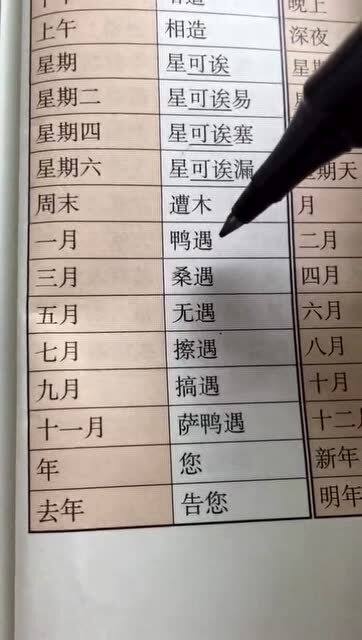 晚上
上午 相造 深夜
星期 星可诶
星期二 星可诶易
星期四 星可诶塞
星期六 星可诶漏 星期天
周末 遭木 月
一月 鸭遇 二月
三月 桑遇 四月
五月 无遇 六月
七月 擦遇 八月
九月 搞遇 十月
十一月 萨鸭遇 十二
年 您 新年
去年 告您 明年